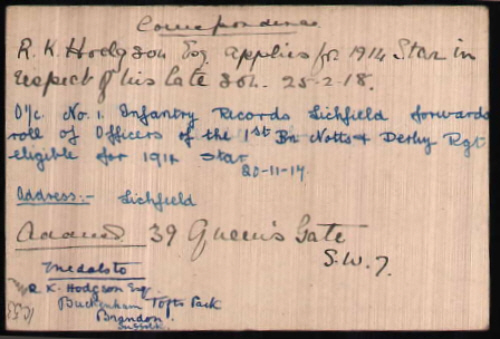 Correspondence.
R. K. Hodgson Esq. applies for 1914 Star in
respect of his late son. 25-2-18.
O/c. No. 1. Infantry Records Lichfield forwards
roll of Officers of the 1st Bn Notts & Derby Rgt
eligible for 1914 Star
20-11-17.
Address:- Lichfield
Address. 39 Queen's Gate
S.W.7.
Medals to
R. K. Hodgson Esq.
Buckenham Tofts Park
Brandon.
Suffolk.